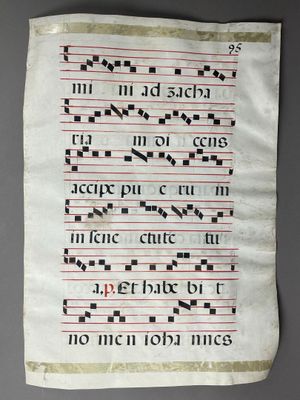 95
mi ni ad zacha
ria m di cens
accipe pu e ru m
in sene ctute tu
a, p. Et habe bi t
no men ioha nnes